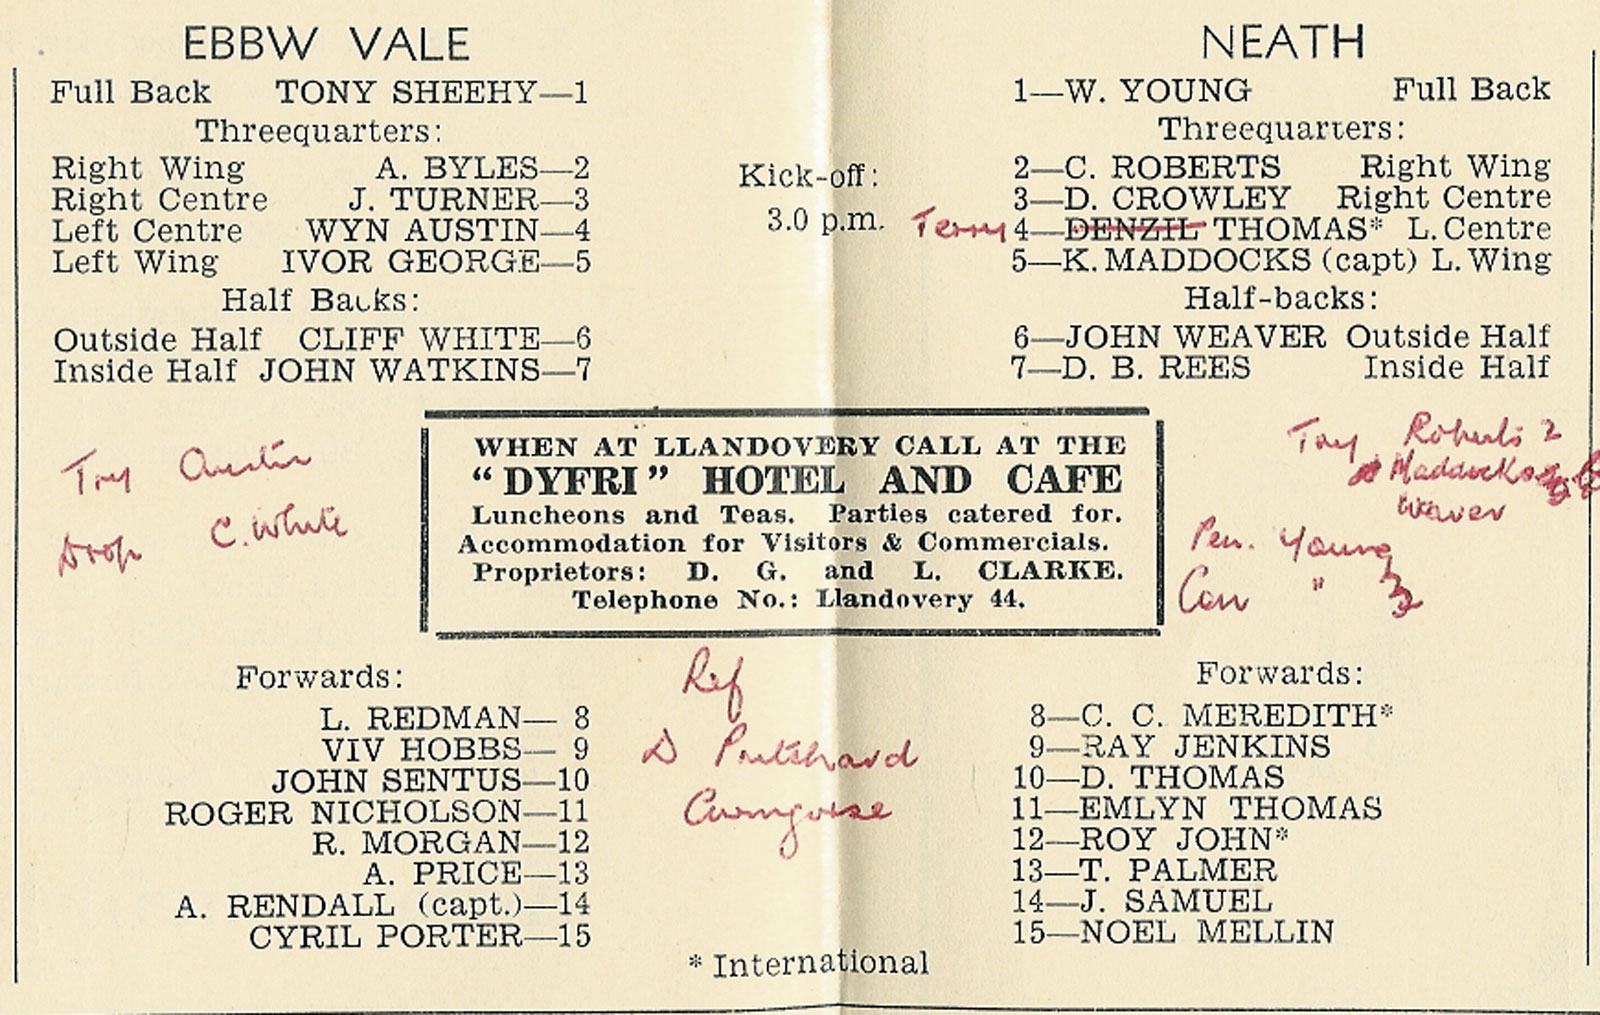 EBBW VALE
Full Back TONY SHEEHY—1
Threequarters:
Right Wing A. BYLES—2
Right Centre J. TURNER—3
Left Centre WYN AUSTIN—4
Left Wing IVOR GEORGE—5
Half Backs:
Outside Half CLIFF WHITE—6
Inside Half JOHN WATKINS—7
Try Austin
Drop C. White
Kick-off:
3.0 p.m.
NEATH
1—W. YOUNG Full Back
Threequarters:
2—C. ROBERTS Right Wing
3—D. CROWLEY Right Centre
Terry 4—DENZIL THOMAS* L. Centre
5—K. MADDOCKS (capt) L. Wing
Half-backs:
6—JOHN WEAVER Outside Half
7—D. B. REES Inside Half
Try Roberts 2
Maddocks
Weaver
Pen. Young
Con " 2
WHEN AT LLANDOVERY CALL AT THE
“DYFRI” HOTEL AND CAFE
Luncheons and Teas. Parties catered for.
Accommodation for Visitors & Commercials.
Proprietors: D. G. and L. CLARKE.
Telephone No.: Llandovery 44.
Forwards:
L. REDMAN— 8
VIV HOBBS— 9
JOHN SENTUS—10
ROGER NICHOLSON—11
R. MORGAN—12
A. PRICE—13
A. RENDALL (capt.)—14
CYRIL PORTER—15
Ref
D Pritchard
Forwards:
8—C. C. MEREDITH*
9—RAY JENKINS
10—D. THOMAS
11—EMLYN THOMAS
12—ROY JOHN*
13—T. PALMER
14—J. SAMUEL
15—NOEL MELLIN
* International